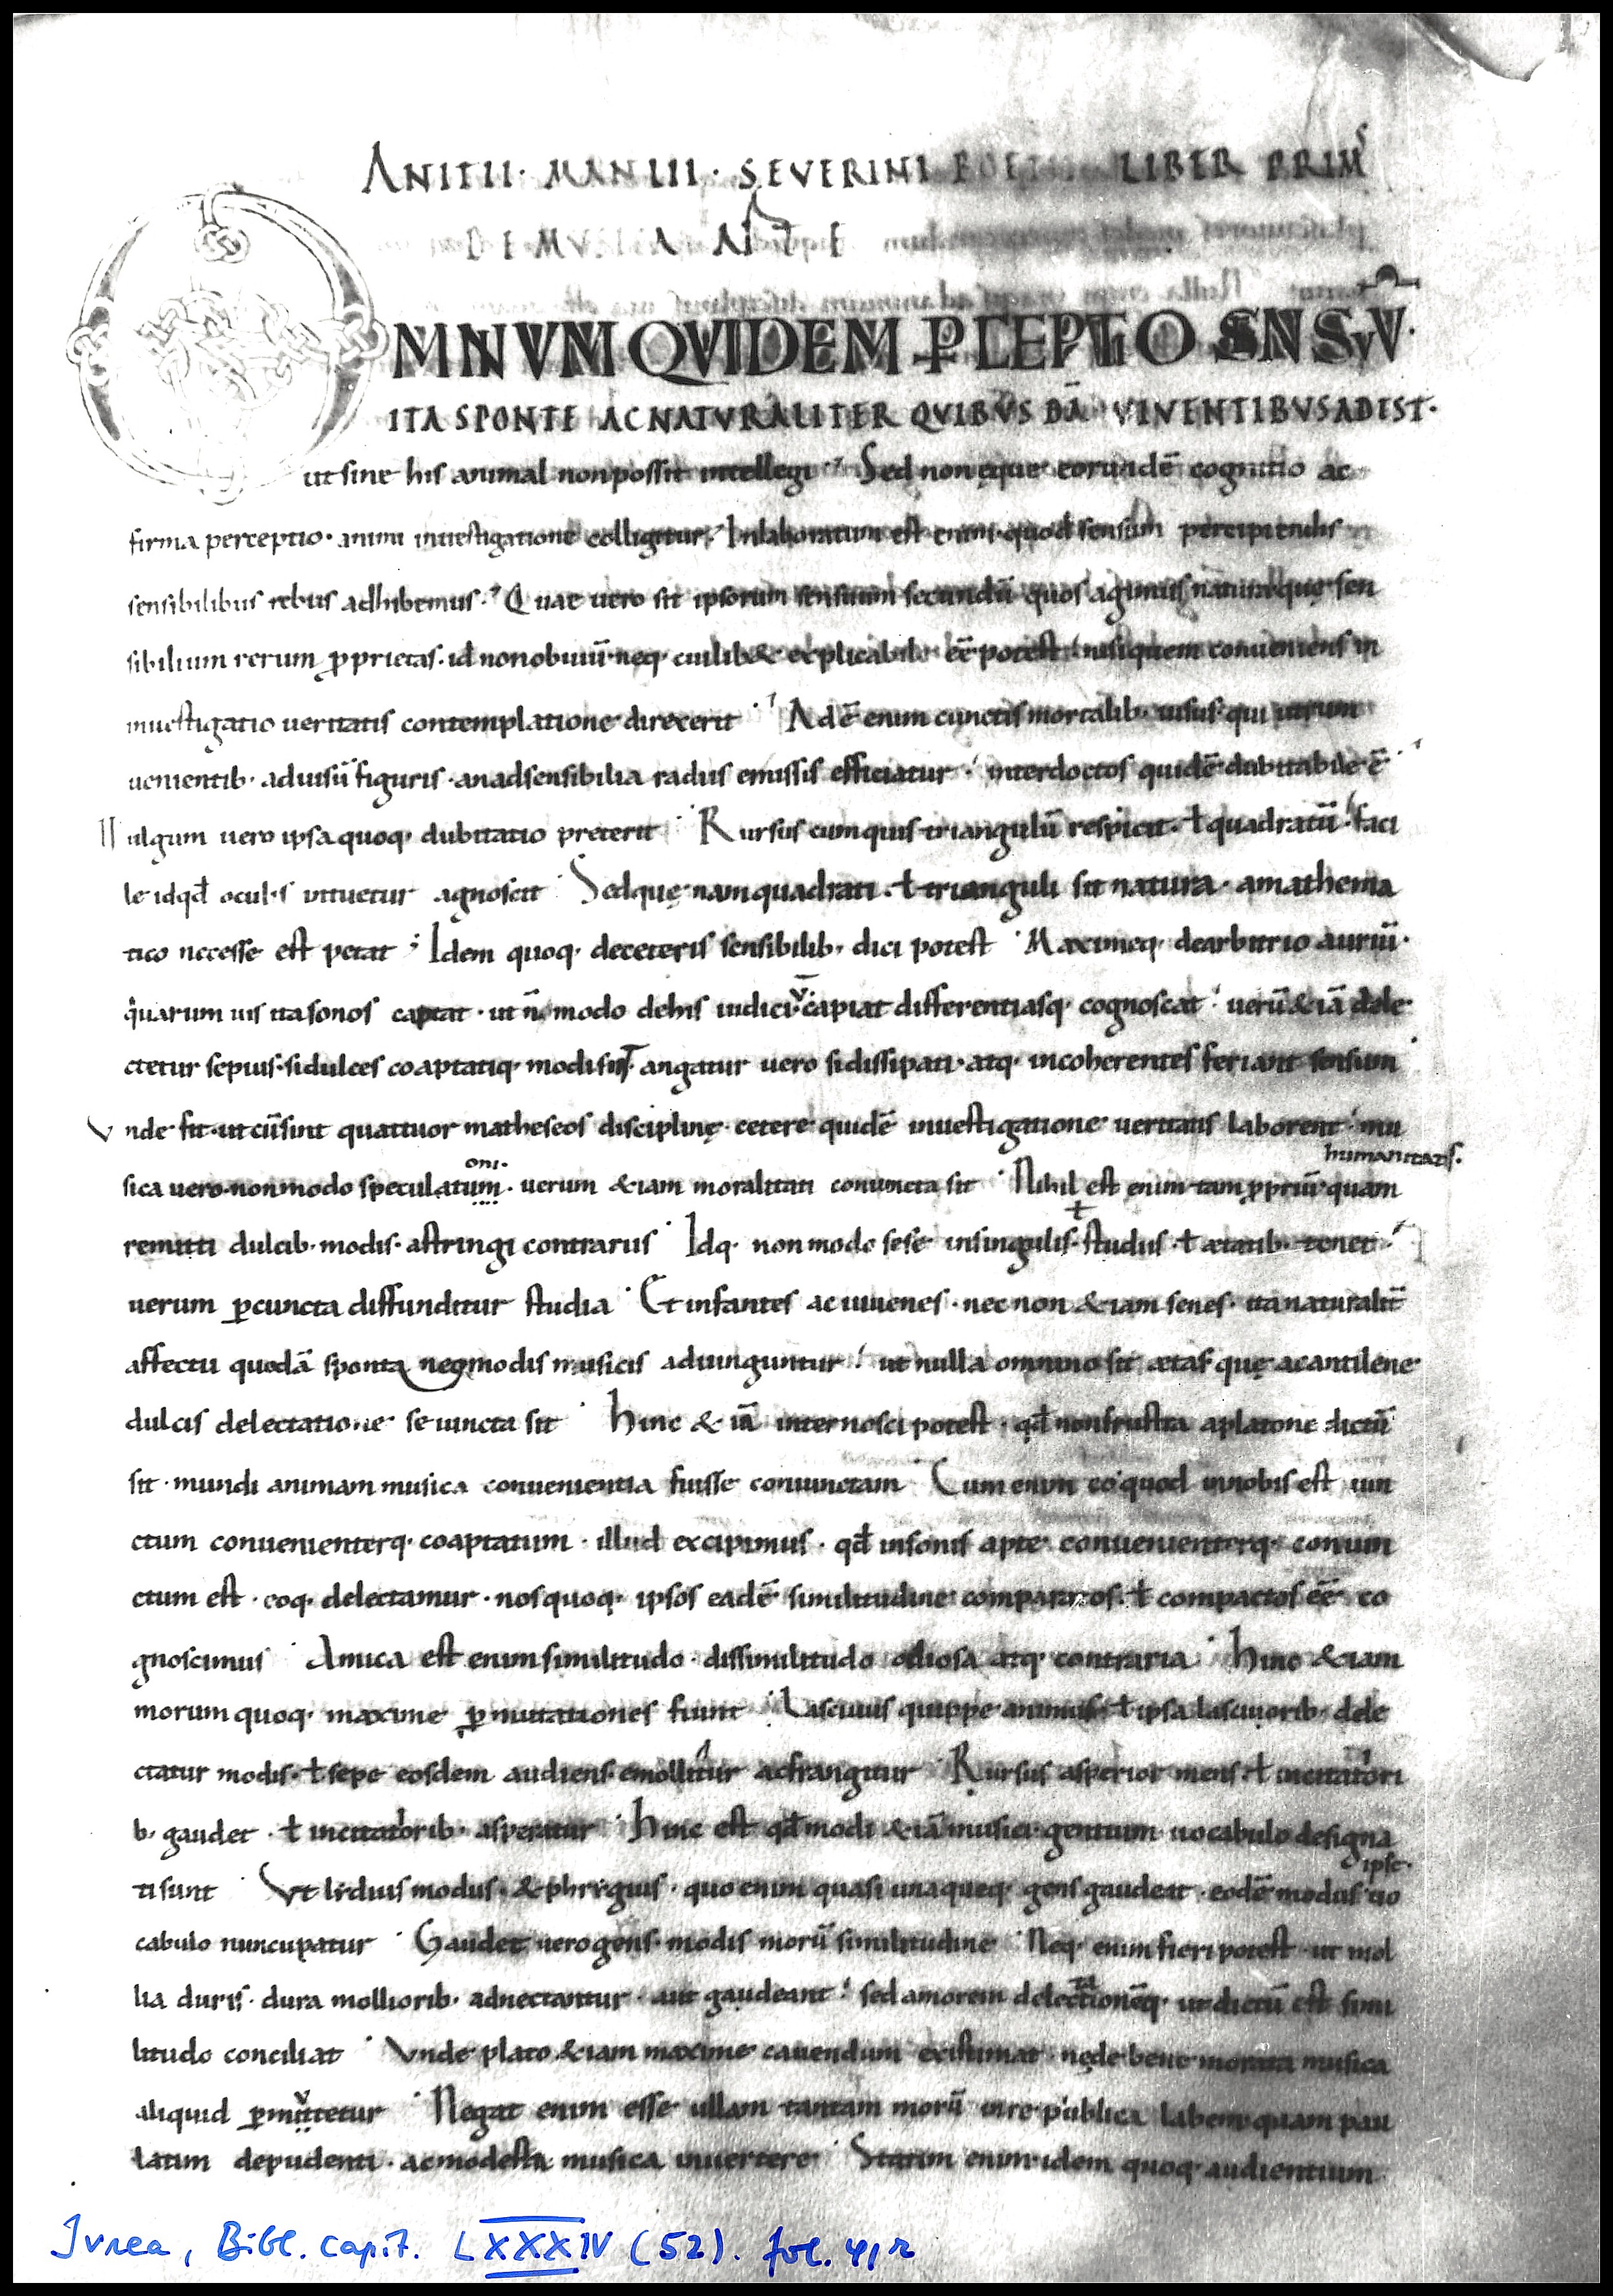 ANITII · MANLII · SEVERINI BOETII LIBER PRIMꝰ
DE MV A A T E
OMNIVM QVIDEM ꝑCEPTIO SENSVV·
ITA SPONTE AC NATVRALITER QVIBVSDĀ VIVENTIBVS ADEST·
ut sine his animal non possit intellegi Sed non eque eorundē cognitio ac
firma perceptio · animi inuestigatione colligitur Inlaboratum est enim · quod sensum percipiendis
sensibilibus rebus adhibemus Quae uero sit ipsorum sensuum secundū quos agimus natura que sen
sibilium rerum ꝓprietas · id non obuiū neq· cuilib& explicabile eē potest nisi quem conueniens in
inuestigatio ueritatis contemplatione direxerit Adē enim cunctis mortalib· uisus qui utrum
uenientib· ad uisū figuris · an ad sensibilia radiis emissis efficiatur inter doctos quidē dubitabile ē
Uulgum uero ipsa quoq· dubitatio preterit Rursus cum quis triangulū respicit · ł quadratū faci
le id qđ oculis intuetur agnoscit Sed quęnam quadrati · ł trianguli sit natura · a mathema
tico necesse est petat Idem quoq· de ceteris sensibilib· dici potest Maximeq· de arbitrio auriū·
quarum uis ita sonos captat · ut n̄ modo de his iudiciū capiat differentiasq· cognoscat uerū &iā dele
ctetur sepius · si dulces coaptatiq· modi sint angatur uero si dissipati · atq· incoherentes feriant sensum
Vnde fit · ut cū sint quattuor matheseos disciplinę · cetere quidē inuestigatione ueritatis laborent mu
humanitatis·
oni·
sica uero · non modo speculatum · uerum &iam moralitati coniuncta sit Nihil est enim tam ꝓpriū quam
remitti dulcib· modis · astringi contrariis Idq· non modo sese in singulis · studiis · ł ætatib· tenet
uerum ꝑ cuncta diffunditur studia Et infantes ac iuuenes · nec non &iam senes · ita naturalit̄
affectu quodā spontaneo modis musicis adiunguntur ut nulla omnino sit ætas quę a cantilene
dulcis delectatione seiuncta sit Hinc & iā internosci potest · qđ non frustra a platone dictū
sit · mundi animam musica conuenientia fuisse coniunctam Cum enim eo quod in nobis est iun
ctum conuenienterq· coaptatum · illud excipimus · qđ in sonis apte conuenienterq· coniun
ctum est · eoq· delectamur · nos quoq· ipsos eadē similitudine ł compactos eē co
gnoscimus Amica est enim similitudo · dissimilitudo odiosa atq· contraria Hinc &iam
morum quoq· maxime ꝑmutationes fiunt Lasciuus quippe animus ł ipsa lasciuiorib· dele
ctatur modis · ł sepe eosdem audiens emollitur ac frangitur Rursus asperior mens ł incitatiori
b· gaudet · ł incitatiorib· asperatur Hinc est qđ modi &iā musici gentium uocabulo designa
ipse·
ti sunt Vt lidius modus · & phrigius · quo enim quasi unaqueq· gens gaudeat · eodē modus uo
cabulo nuncupatur Gaudet uero gens modis morū similitudine Neq· enim fieri potest ut mol
lia duris · dura molliorib· adnectantur · aut gaudeant sed amorem delectationēq· ut dictū est simi
litudo conciliat Vnde plato &iam maxime cauendum existimat ne de bene morata musica
aliquid ꝑmutetur Negat enim esse ullam tantam morū in re publica labem quam pau
latim de pudenti · ac modesta musica inuertere Statim enim idem quoq· audientium
Ivrea, Bibl. capit. LXXXIV (52). fol. 41r